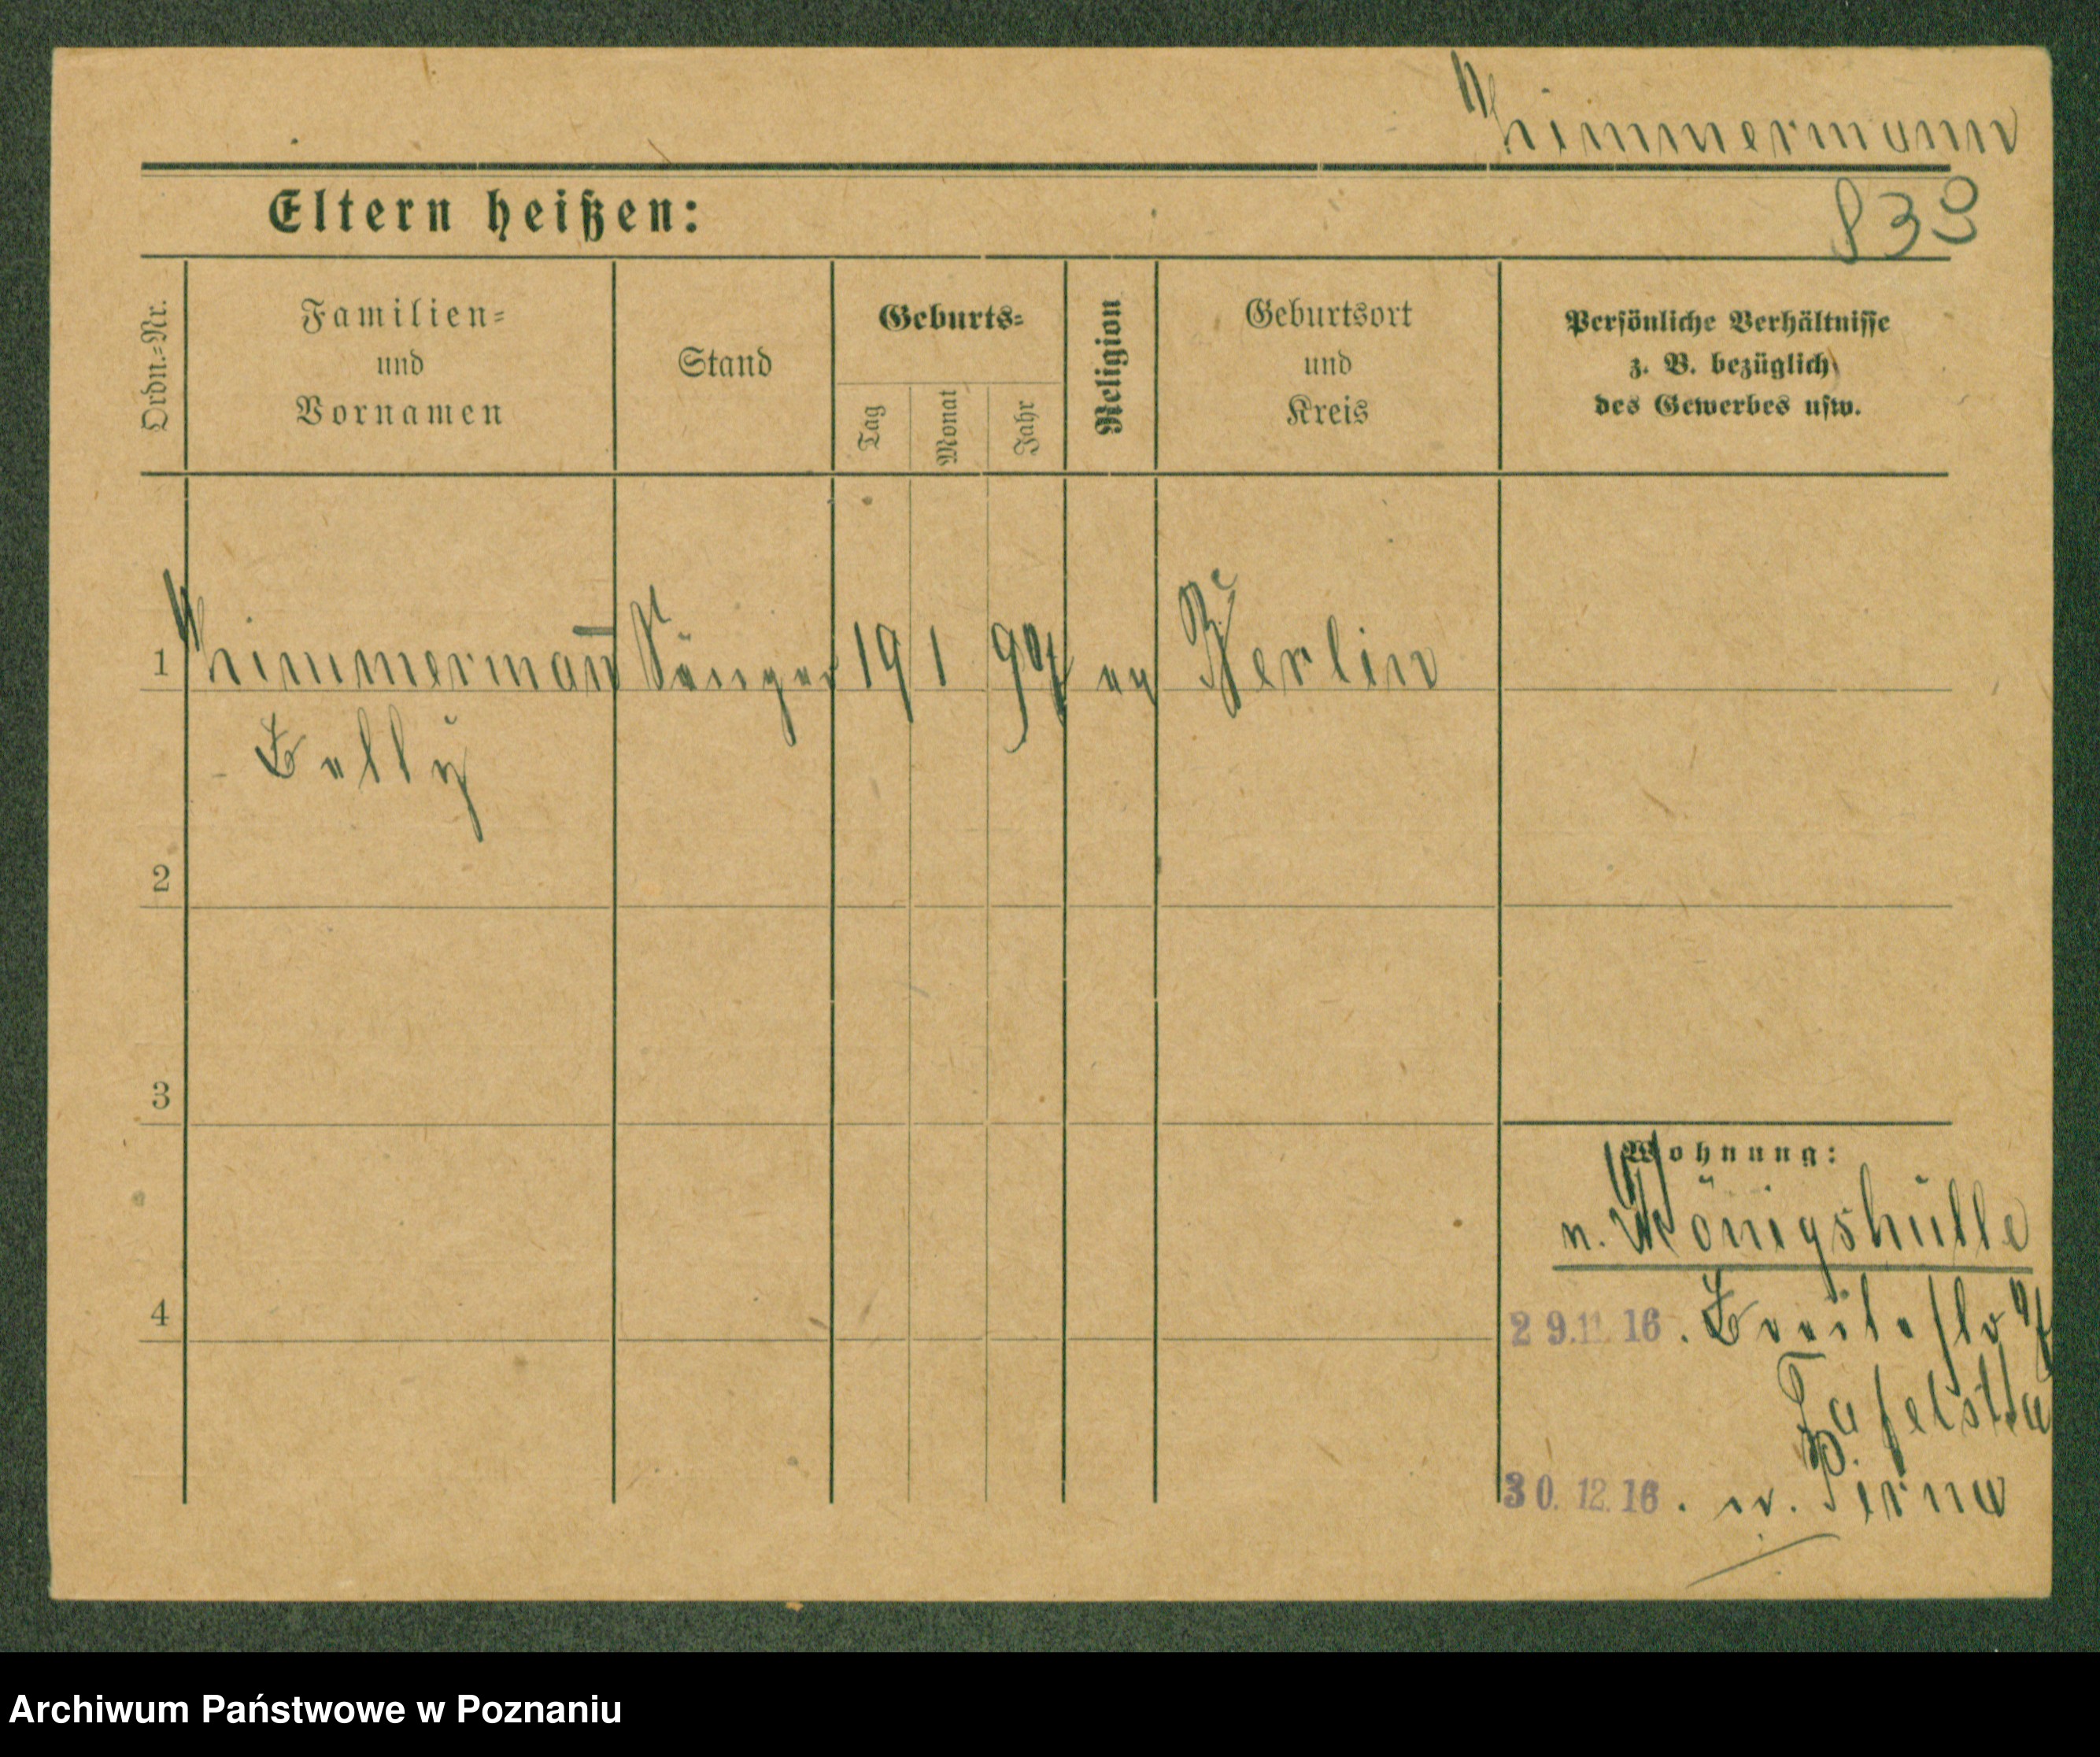 Zimmermann
Eltern heißen:
833
Ordn.-Nr.
Familien-
und
Vornamen
Stand
Geburts-
Tag
Monat
Jahr
Religion
Geburtsort
und
Kreis
Persönliche Verhältnisse
z. B. bezüglich
des Gewerbes usw.
1 Zimmermañ Sänger 19 1 94 ev Berlin
Belly
2
3
4
Wohnung:
n. Königshütte
29.11.16. Breitestr
30.12.16. n. Pirna
Archiwum Państwowe w Poznaniu